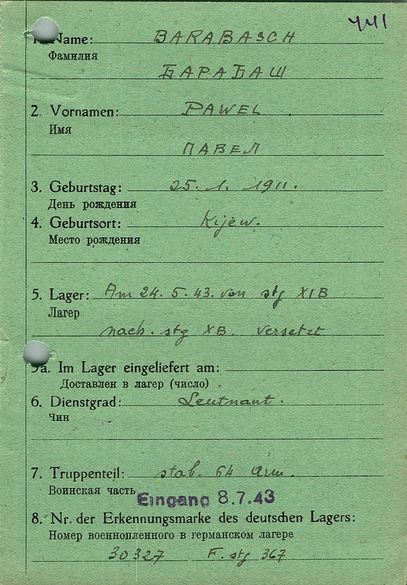 441
1. Name: BARABASCH
Фамилия
БАРАБАШ
2. Vornamen: PAWEL
Имя
ПАВЕЛ
3. Geburtstag: 25. 1. 1911.
День рождения
4. Geburtsort: Kijew.
Место рождения
5. Lager: Am 24. 5. 43. von stg XIB
Лагер
nach. stg XB. versetzt
5a. Im Lager eingeliefert am:
Доставлен в лагер (число)
6. Dienstgrad: Leutnant.
Чин
7. Truppenteil: stab. 64 Arm.
Воинская часть
Eingang 8.7.43
8. Nr. der Erkennungsmarke des deutschen Lagers:
Номер военнопленного в германском лагере
30327 F. stg 367